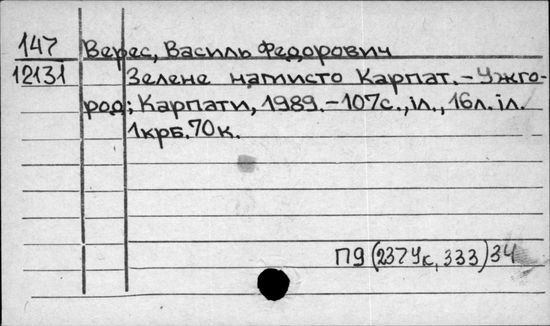 147 Верес, Василь Федорович
12131 Зелене намисто Карпат. – Ужго-
род; Карпати, 1989. – 107с., іл., 16л. іл.
1крб. 70к.
П9(237Ук, 333)34